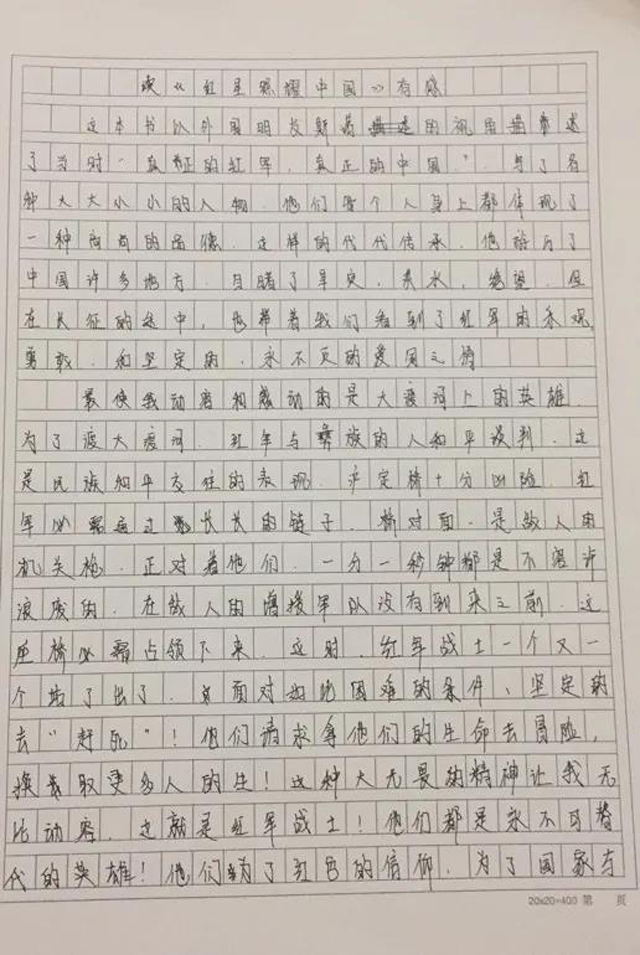 读《红星照耀中国》有感
这本书以外国朋友斯诺的视角描述
了当时"真正的红军,真正的中国"。写了各
种大大小小的人物,他们每个人身上都体现了
一种高尚的品德,这样的代代传承,他游历了
中国许多地方,目睹了旱灾,洪水,绝望,但
在长征的途中,也带着我们看到了红军的乐观,
勇敢,和坚定的,永不灭的爱国之情
最使我动容和感动的是大渡河上的英雄,
为了渡大渡河,红军与彝族的人和平谈判,这
是民族和平交往的表现,泸定桥十分凶险,红
军必需病过长长的链子,桥对面,是敌人的
机关枪,正对着他们,一分一秒钟都是不容许
浪废的,在敌人的增援军队没有到来之前,这
座桥必需占领下来,这时,红军战士一个又一
个站了出了,面对如此困难的条件、坚定的
去"赶死"!他们请求拿他们的生命去冒险,
换取更多人的生!这种大无畏的精神让我无
比动容,这就是红军战士!他们都是永不可替
代的英雄!他们为了红色的信仰,为了国家与
20x20=400 第 页